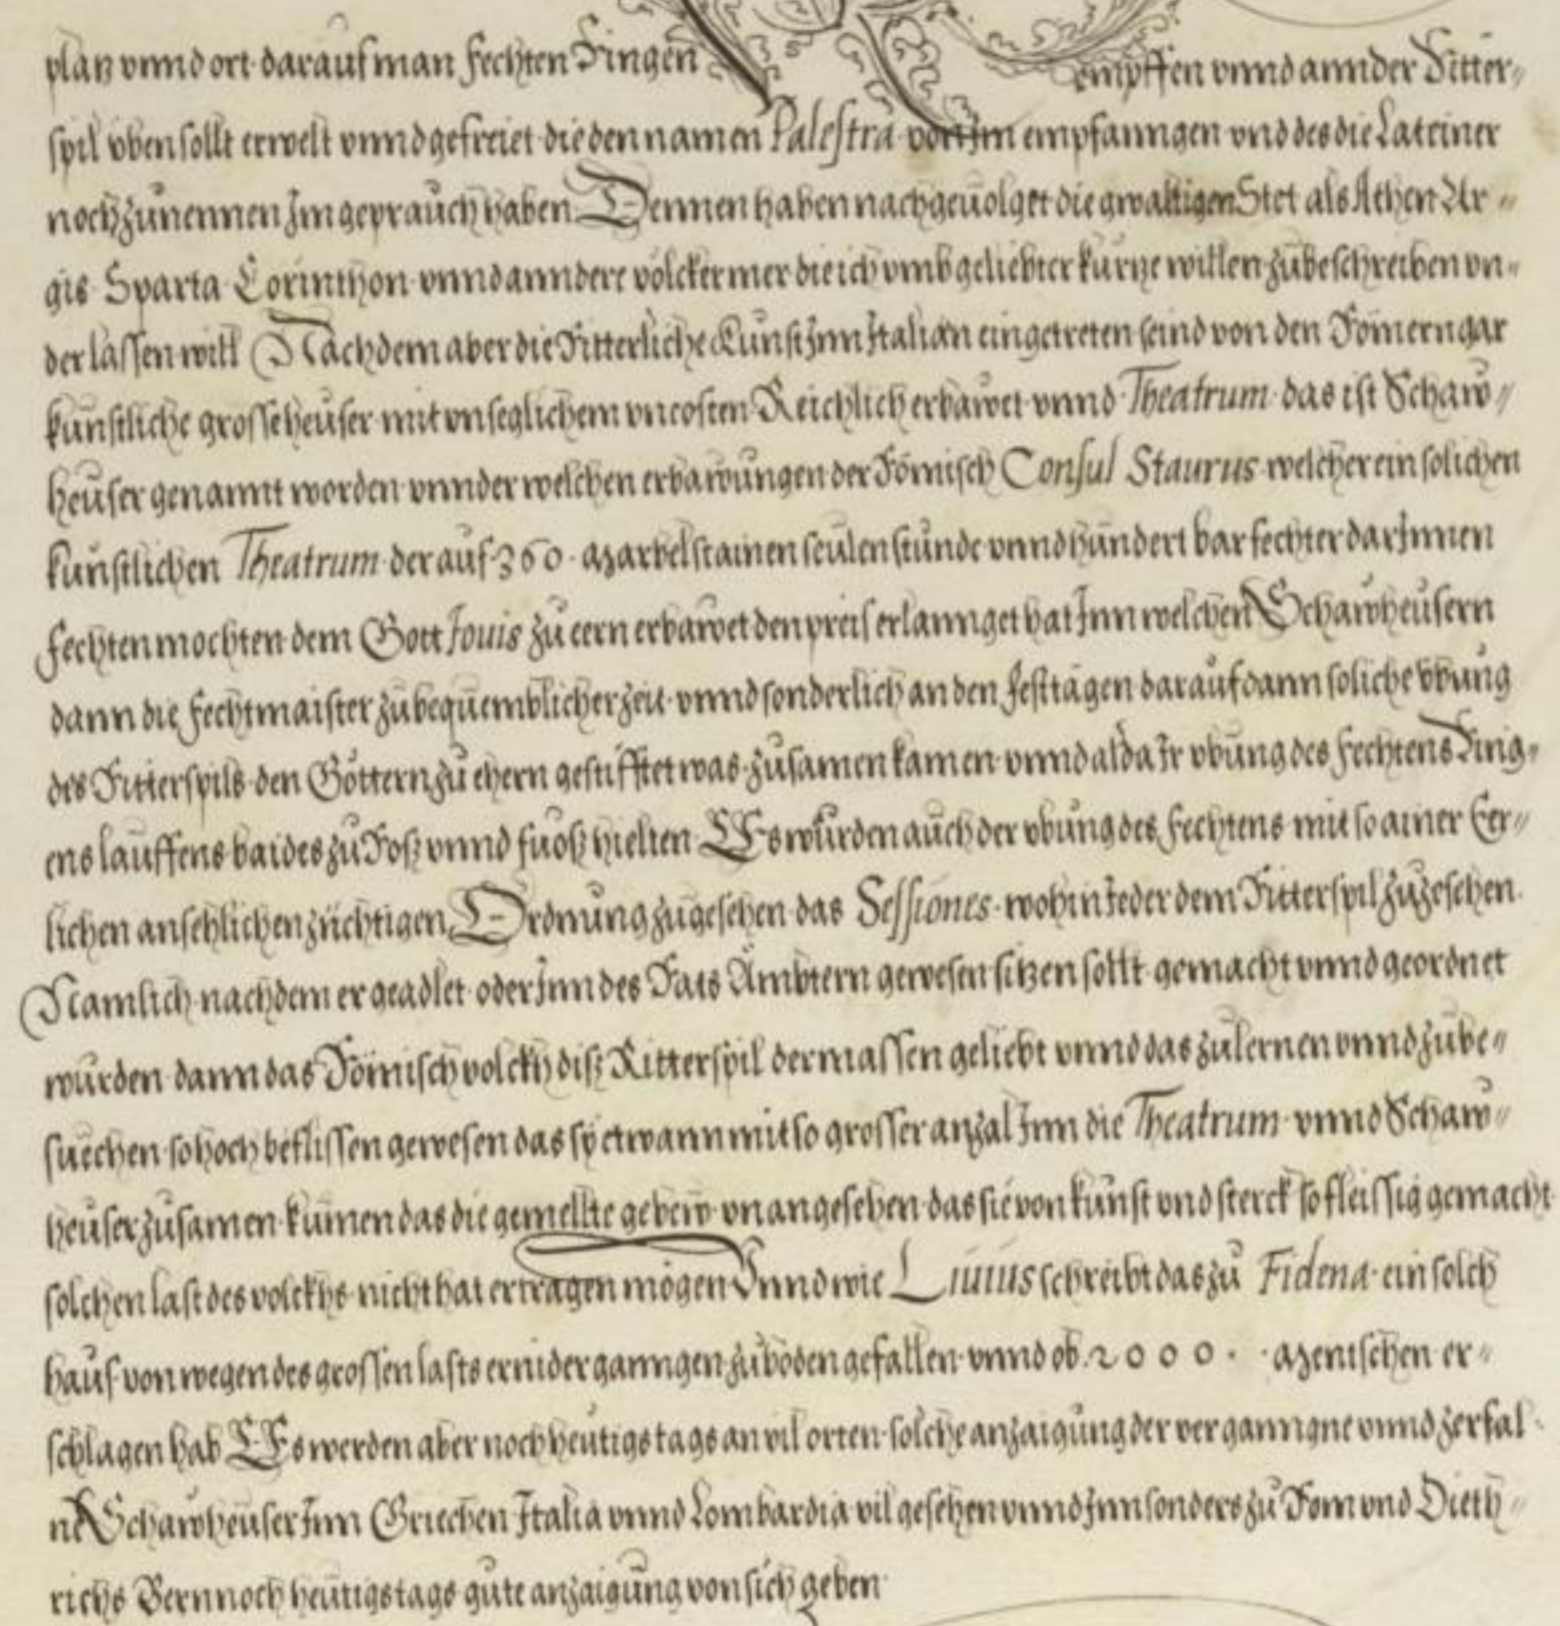 platz vnnd ort darauf man fechten Ringen kempffen vnnd annder Ritter⸗
spil vben sollt erwelt vnnd gefreiet die den namen Palestra von Im empfanngen vnd des die Lateiner
noch zů nennen Im geprauch haben Dennen haben nachgeuolget die gwaltigen Stet als Athen Ar⸗
gis Sparta Corinthon vnnd anndere völcker mer die ich vmb geliebter kürtze willen zůbeschreiben vn⸗
der lassen will Nachdem aber die Ritterliche Kunst Inn Italian eingetreten seind von den Römern gar
künstliche grosse heüser mit vnseglichem vncosten Reichlich erbawet vnnd Theatrum das ist Schaw⸗
heüser genannt worden vnnder welchen erbawungen der Römisch Consul Staurus welcher ein solichen
künstlichen Theatrum der auf 360 Marbelstainen seülen stunde vnnd hundert bar fechter darInnen
fechten mochten dem Gott Jouis zů eern erbawet den preis erlannget hat Inn welchen Schawheüsern
dann die fechtmaister zů bequemblicher zeit vnnd sonderlich an den festtagen darauf dann soliche vbung
des Ritterspils den Göttern zů ehern gestifftet was zůsamen kamen vnnd alda Ir vbung des fechtens Ring⸗
ens lauffens baides zů Roß vnnd fuoß hielten Es wurden auch der vbung des fechtens mit so ainer Eer⸗
lichen ansehlichen züchtigen Ordnung zůgesehen das Sessiones wohin Ieder dem Ritterspil zůzesehen
Namlich nachdem er geadlet oder Inn des Rats Ämbtern gewesen sitzen sollt gemacht vnnd geordnet
wurden dann das Römisch volckh diß Ritterspil dermassen geliebt vnnd das zůlernen vnnd zůbe⸗
suechen so hoch beflissen gewesen das sy etwann mit so grosser anzal Inn die Theatrum vnnd Schaw⸗
heüser zůsamen kumen das die gemellte gebew vnangesehen das sie von kunst vnd sterck so fleissig gemacht
solchen last des volckhs nicht hat ertragen mögen Vnnd wie Liuius schreibt das zů Fidena ein solch
haus von wegen des grossen lasts ernider ganngen zů boden gefallen vnnd ob 2000 Menschen er⸗
schlagen hab Es werden aber noch heütigs tags an vil orten solche anzaigung der verganngne vnnd zerfal⸗
ne Schawheüser Inn Griechen Italia vnnd Lombardia vil gesehen vnnd Innsonders zů Rom vnd Dieth⸗
richs Bern noch heütigs tags gute anzaigung von sich geben